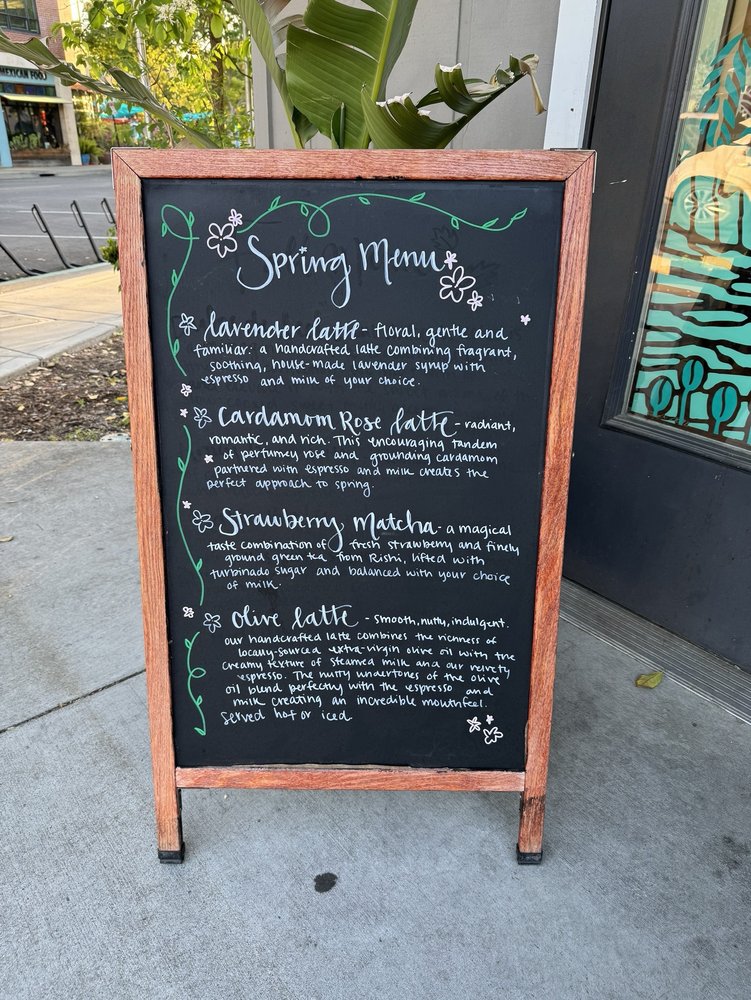 MEXICAN FOOD
Spring Menu
lavender latte - floral, gentle and
familiar: a handcrafted latte combining fragrant,
soothing, house-made lavender syrup with
espresso and milk of your choice.
Cardamom Rose latte - radiant,
romantic, and rich. This encouraging tandem
of perfumey rose and grounding cardamom
partnered with espresso and milk creates the
perfect approach to spring.
Strawberry Matcha - a magical
taste combination of fresh strawberry and finely
ground green tea from Rishi, lifted with
turbinado sugar and balanced with your choice
of milk.
Olive latte - smooth, nutty, indulgent.
our handcrafted latte combines the richness of
locally-sourced extra-virgin olive oil with the
creamy texture of steamed milk and our velvety
espresso. The nutty undertones of the olive
oil blend perfectly with the espresso and
milk creating an incredible mouthfeel.
Served hot or iced